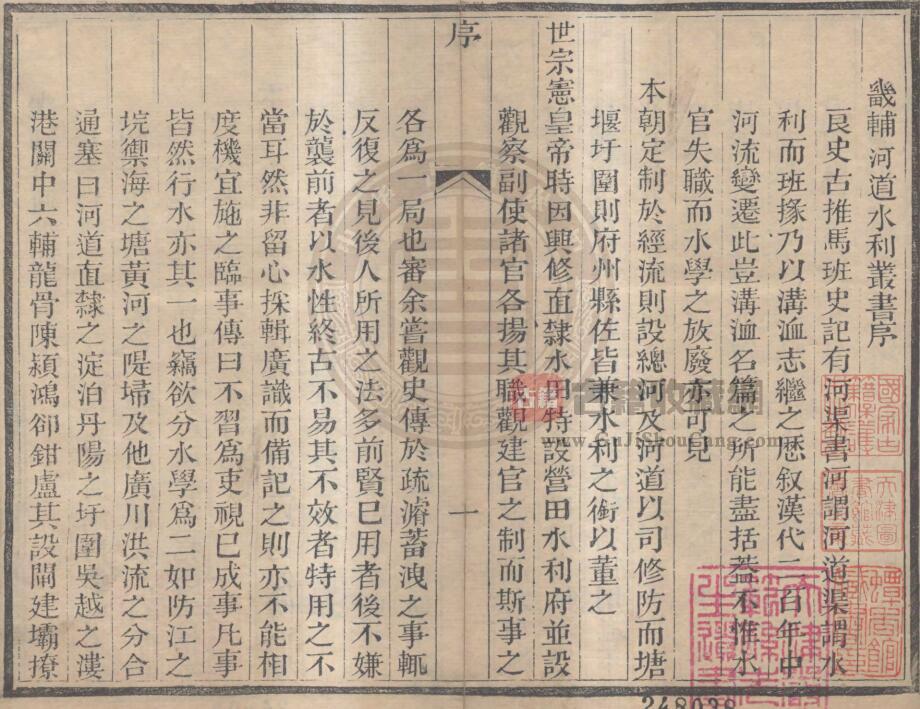 畿輔河道水利叢書序
良史古推馬班史記有河渠書河謂河道渠謂水
利而班掾乃以溝洫志繼之歷叙漢代二百年中
河流變遷此豈溝洫名篇之所能盡括葢不惟水
官失職而水學之放廢亦可見
本朝定制於經流則設總河及河道以司修防而塘
堰圩圍則府州縣佐皆兼水利之銜以董之
世宗憲皇帝時因興修直隸水田特設營田水利府並設
觀察副使諸官各揚其職觀建官之制而斯事之
序
一
各爲一局也審余嘗觀史傳於疏濬蓄洩之事輒
反復之見後人所用之法多前賢已用者後不嫌
於襲前者以水性終古不易其不效者特用之不
當耳然非留心採輯廣識而備記之則亦不能相
度機宜施之臨事傳曰不習爲吏視已成事凡事
皆然行水亦其一也竊欲分水學爲二如防江之
垸禦海之塘黃河之隄埽及他廣川洪流之分合
通塞曰河道直隸之淀泊丹陽之圩圍吳越之漊
港關中六輔龍骨陳潁鴻郤鉗盧其設閘建壩撩
古籍
古籍收藏網
www.GuJiShouCang.com
248038